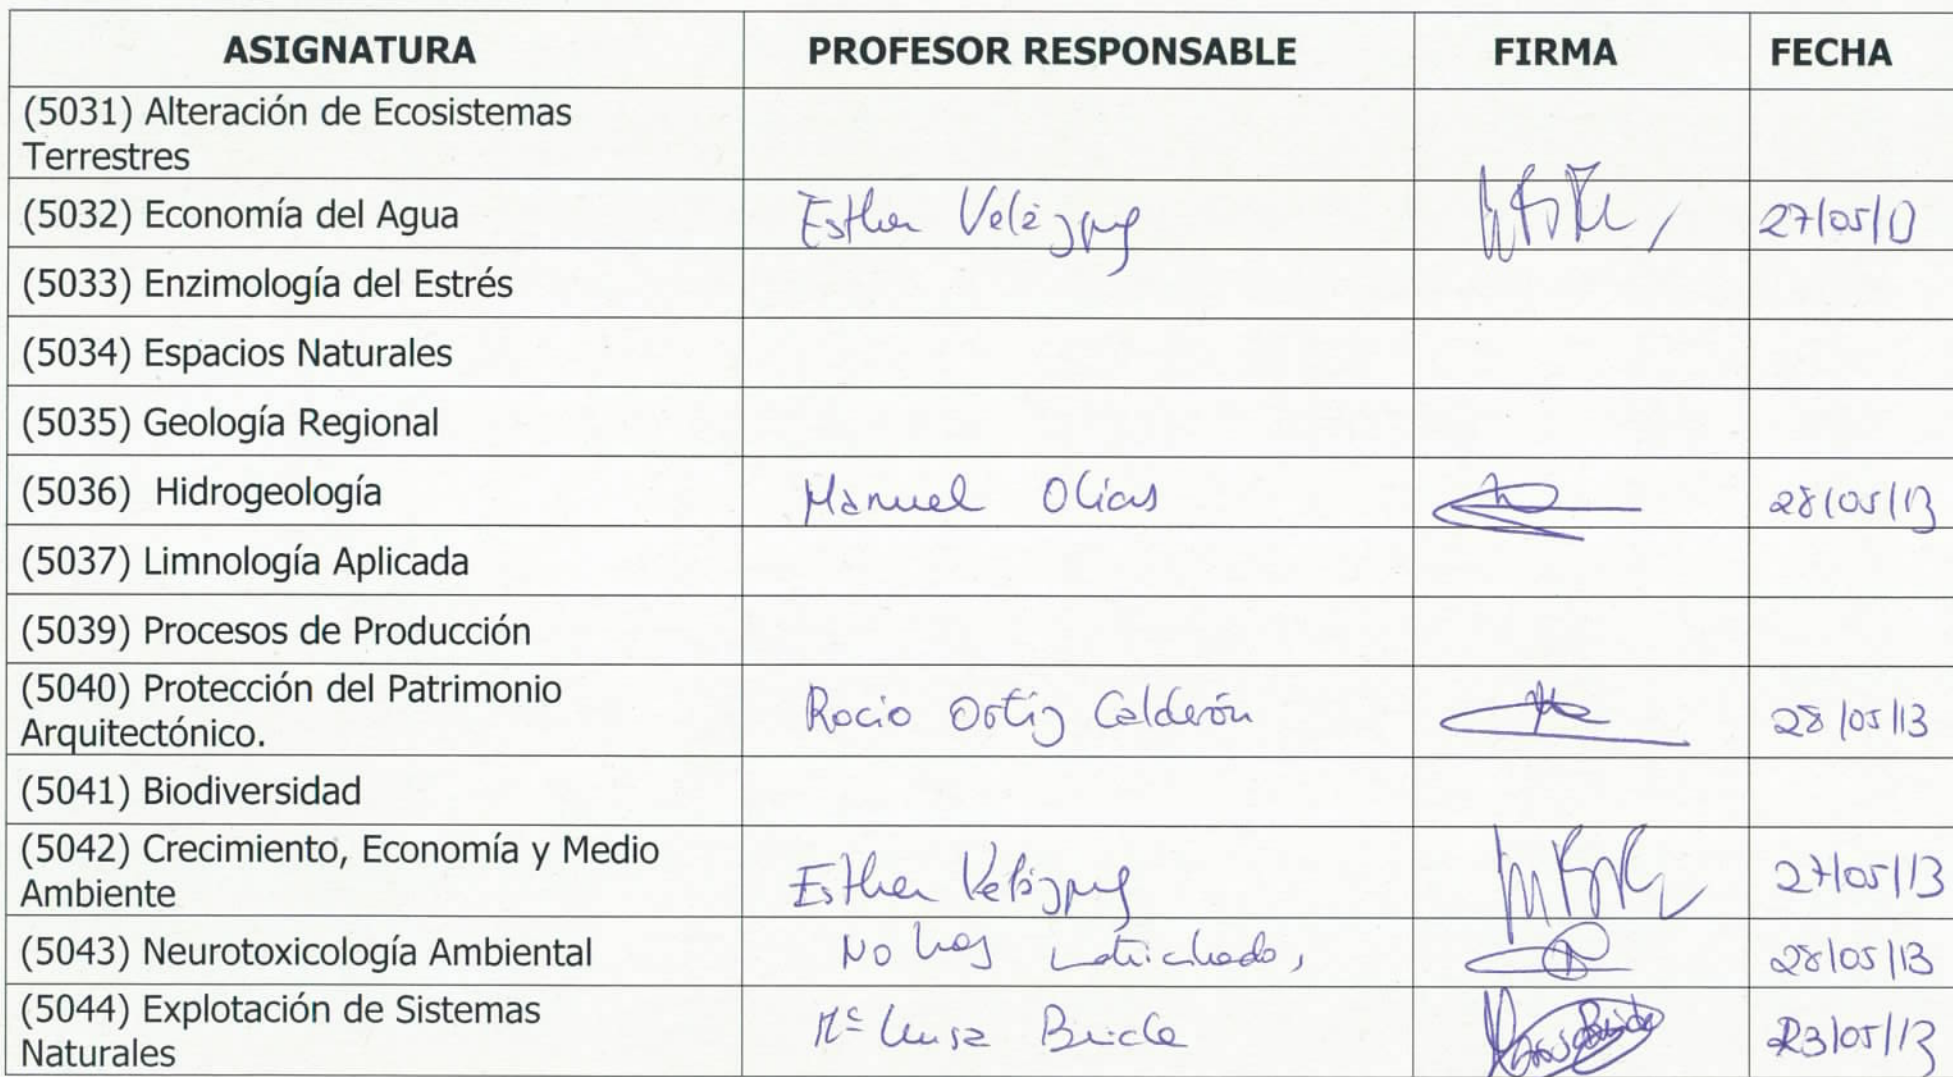 ASIGNATURA PROFESOR RESPONSABLE FIRMA FECHA
(5031) Alteración de Ecosistemas
Terrestres
(5032) Economía del Agua Esther Velázquez 27/05/13
(5033) Enzimología del Estrés
(5034) Espacios Naturales
(5035) Geología Regional
(5036) Hidrogeología Manuel Olías 28/05/13
(5037) Limnología Aplicada
(5039) Procesos de Producción
(5040) Protección del Patrimonio
Arquitectónico. Rocio Ortiz Calderón 28/05/13
(5041) Biodiversidad
(5042) Crecimiento, Economía y Medio
Ambiente Esther Velázquez 27/05/13
(5043) Neurotoxicología Ambiental No hay 28/05/13
(5044) Explotación de Sistemas
Naturales Mª Luisa 23/05/13